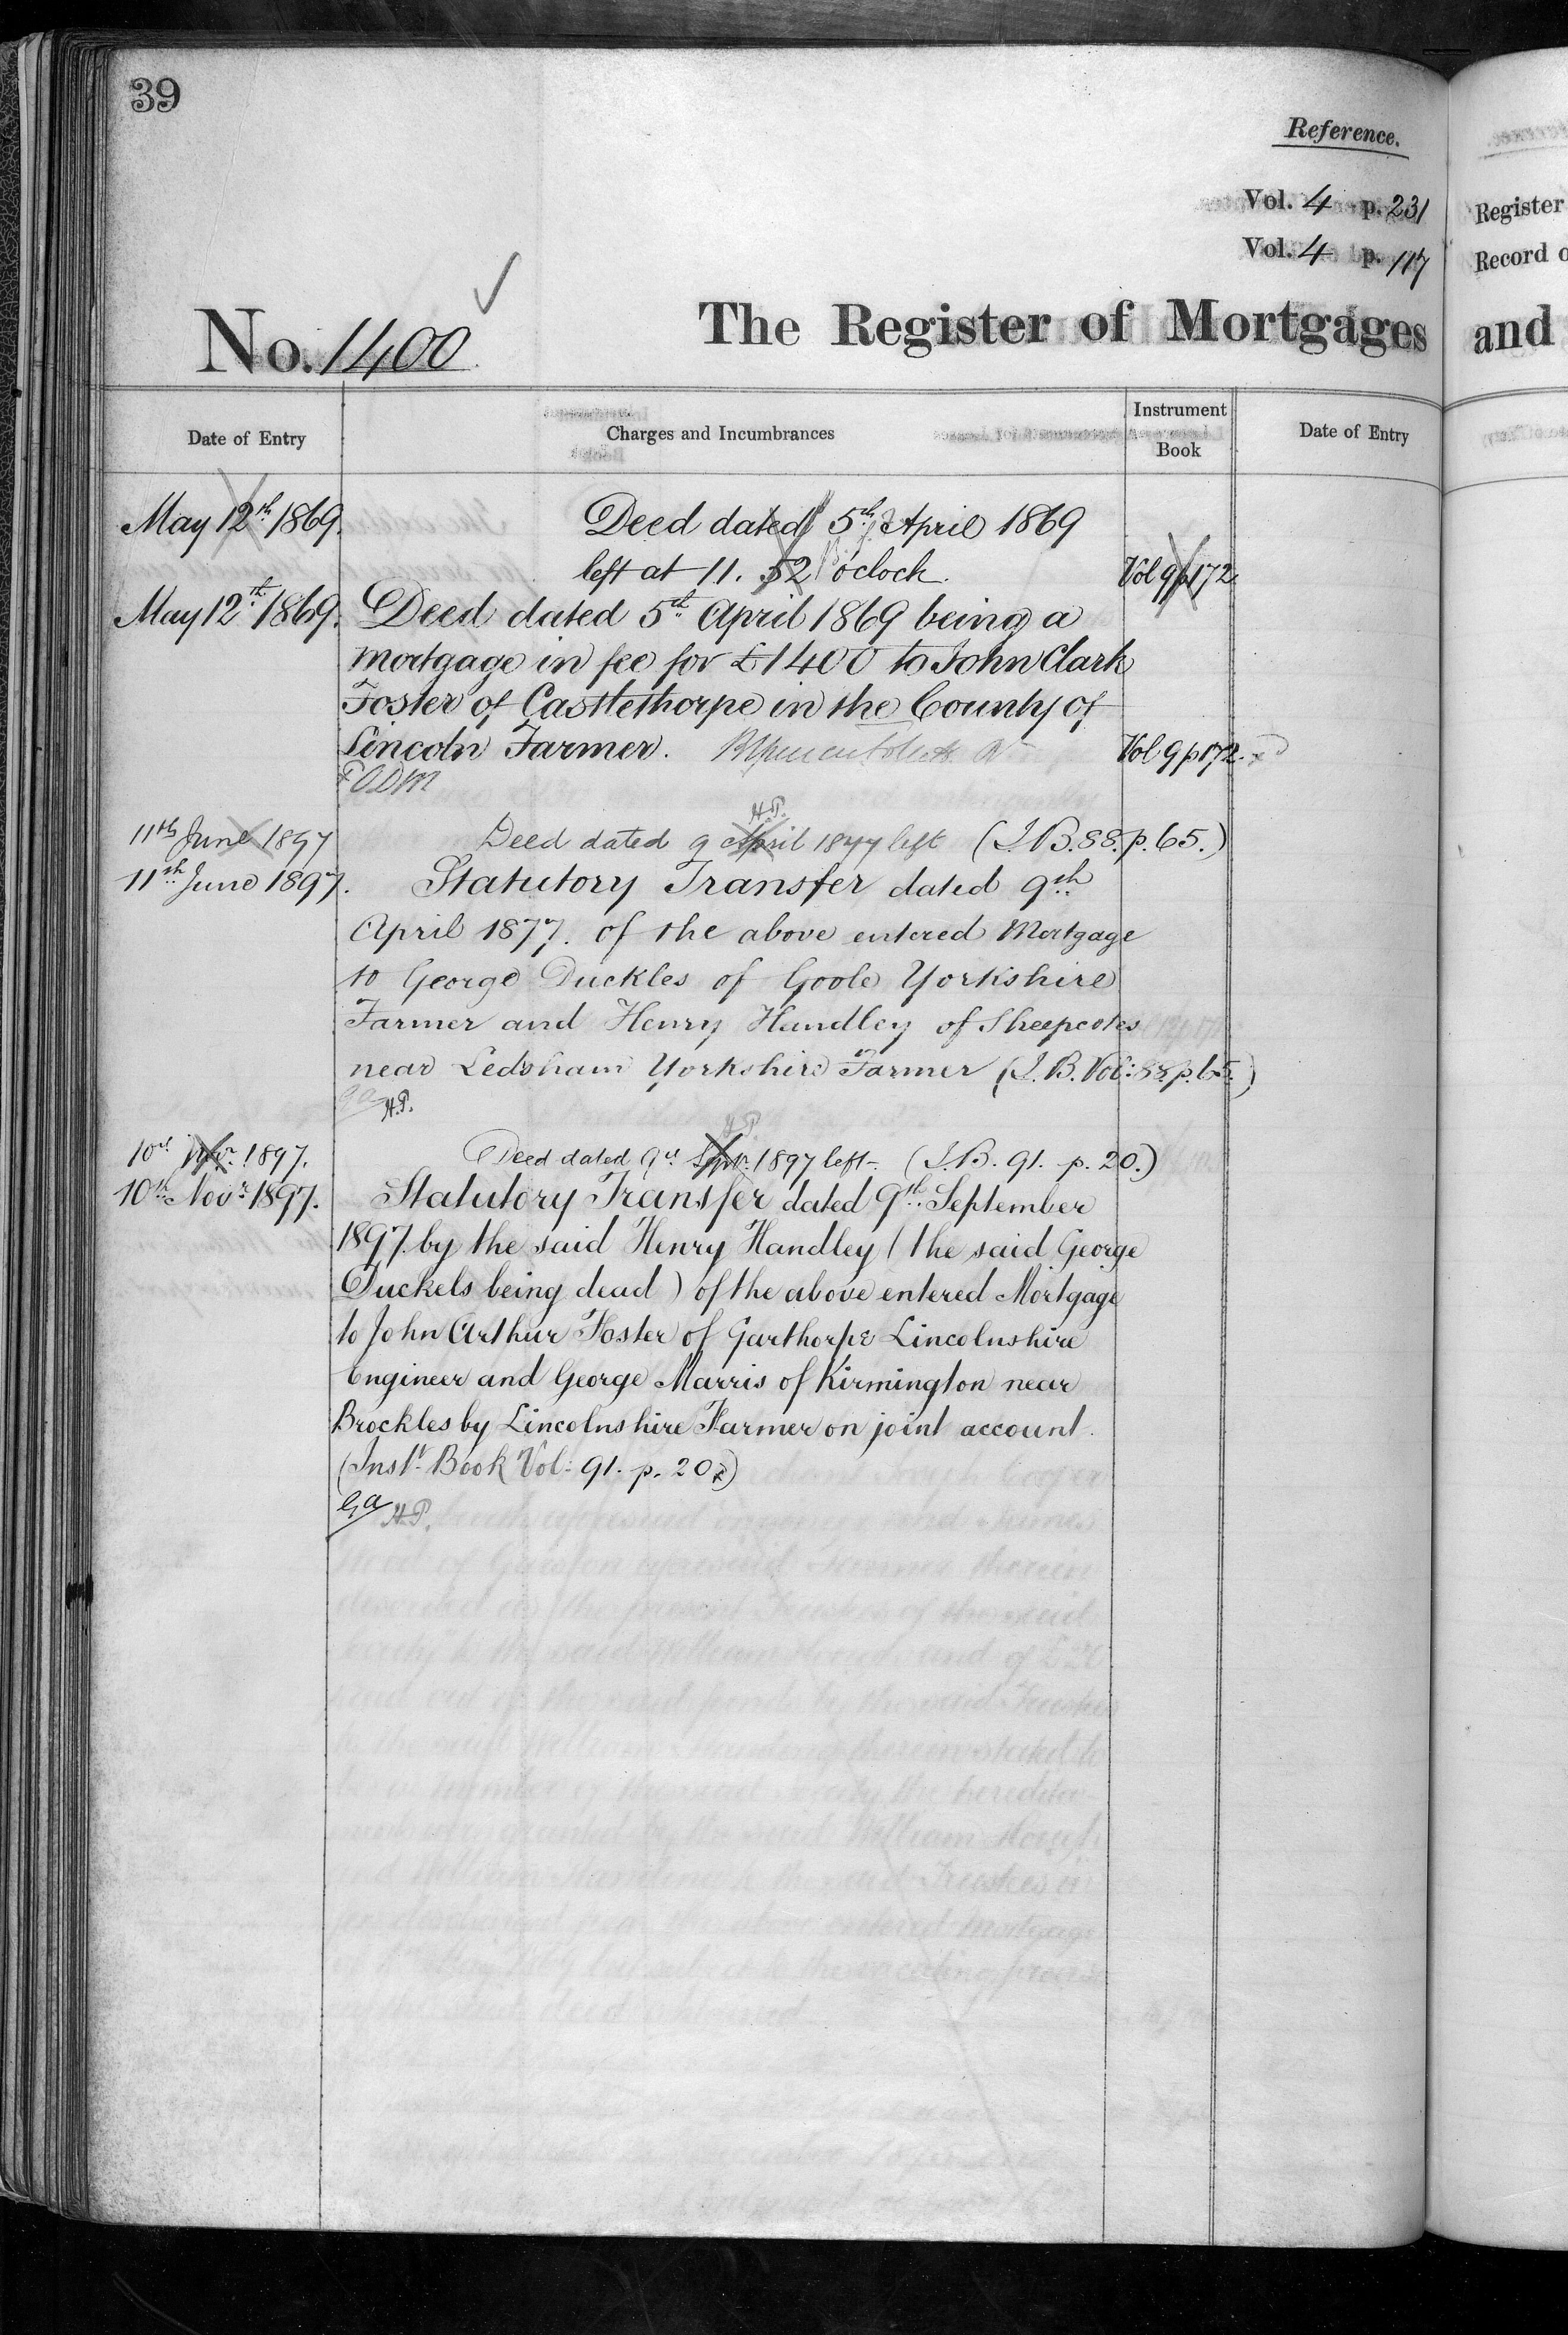 39
Reference.
Vol. 4 p. 231 Register
Vol. 4 p. 117 Record o
No. 1400 The Register of Mortgages and
Date of Entry Charges and Incumbrances Instrument Book Date of Entry
May 12th 1869. Deed dated 5th April 1869
left at 11. 52 o'clock. Vol 9 p 172
May 12th 1869. Deed dated 5th April 1869 being a
mortgage in fee for £1400 to John Clark
Foster of Castlethorpe in the County of
Lincoln Farmer. Vol 9 p 172.
ODM
H.P.
11th June 1897 Deed dated 9 April 1877 left (I.B. 88. p. 65.)
11th June 1897. Statutory Transfer dated 9th
April 1877. of the above entered Mortgage
to George Duckles of Goole Yorkshire
Farmer and Henry Handley of Sheepcotes
near Ledsham Yorkshire Farmer (I.B. Vol: 88 p. 65.)
H.P.
H.P.
10th Novr. 1897. Deed dated 9th Sepr. 1897 left (I.B. 91. p. 20.)
10th Novr 1897. Statutory Transfer dated 9th September
1897 by the said Henry Handley (the said George
Duckels being dead) of the above entered Mortgage
to John Arthur Foster of Garthorpe Lincolnshire
Engineer and George Marris of Kirmington near
Brocklesby Lincolnshire Farmer on joint account.
(Inst. Book Vol: 91. p. 20.)
Ga H.P.